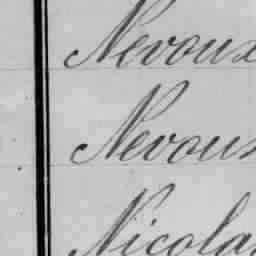 Nevoux
Nevoux
Nicolas